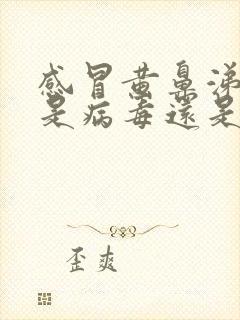 感冒黃鼻涕
是病毒還是
歪爽